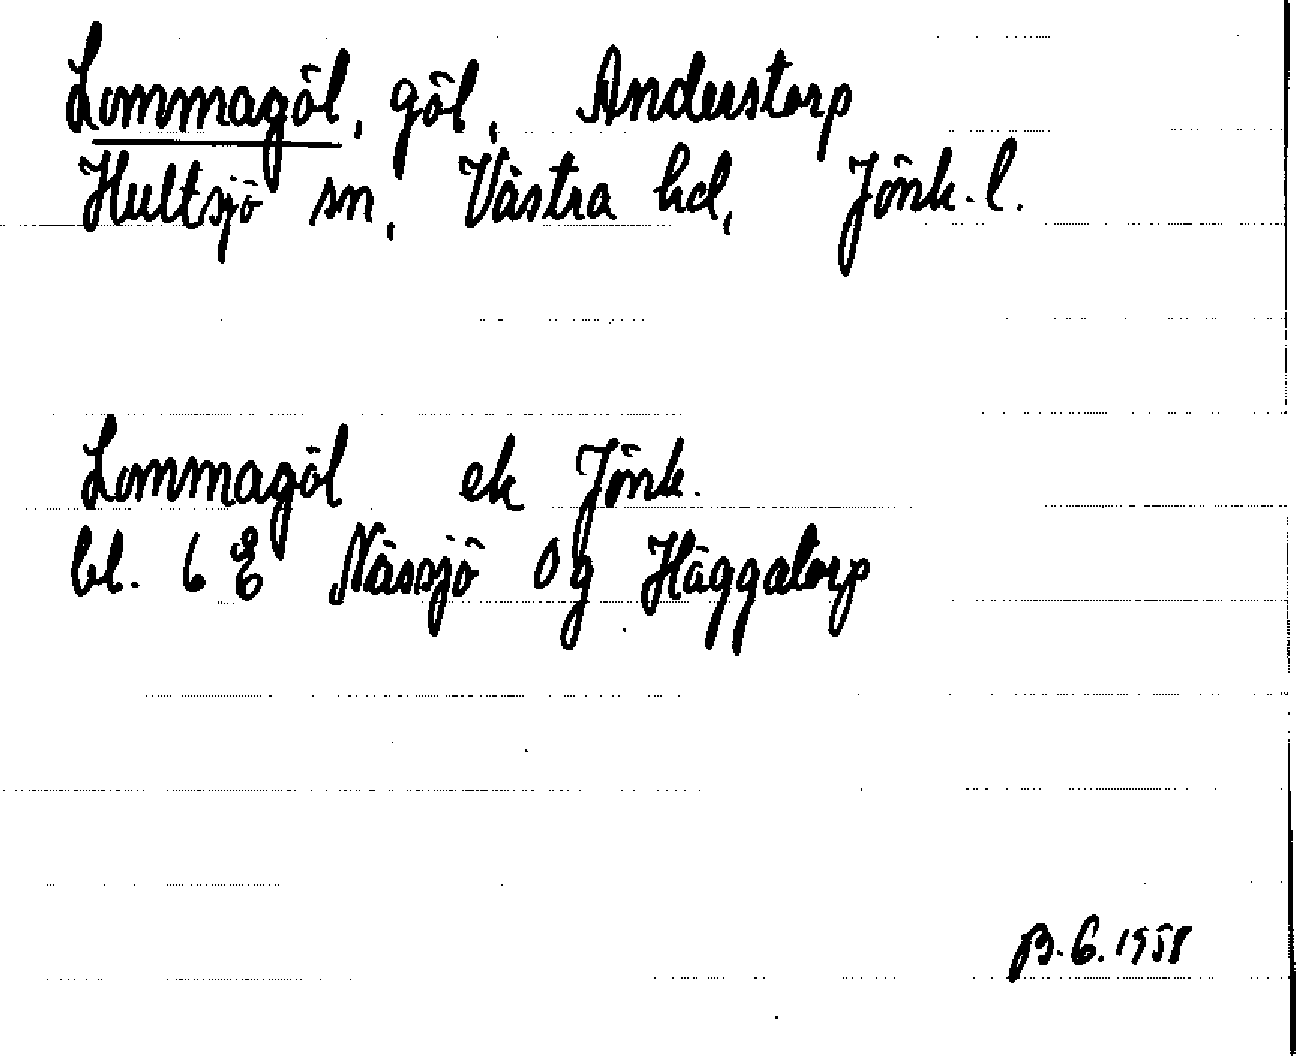 Lommagöl, göl, Anderstorp
Hultsjö sn, Västra hd, Jönk. l.
Lommagöl ek Jönk.
bl. 6 E Nässjö 0g Häggatorp
B. G. 1958